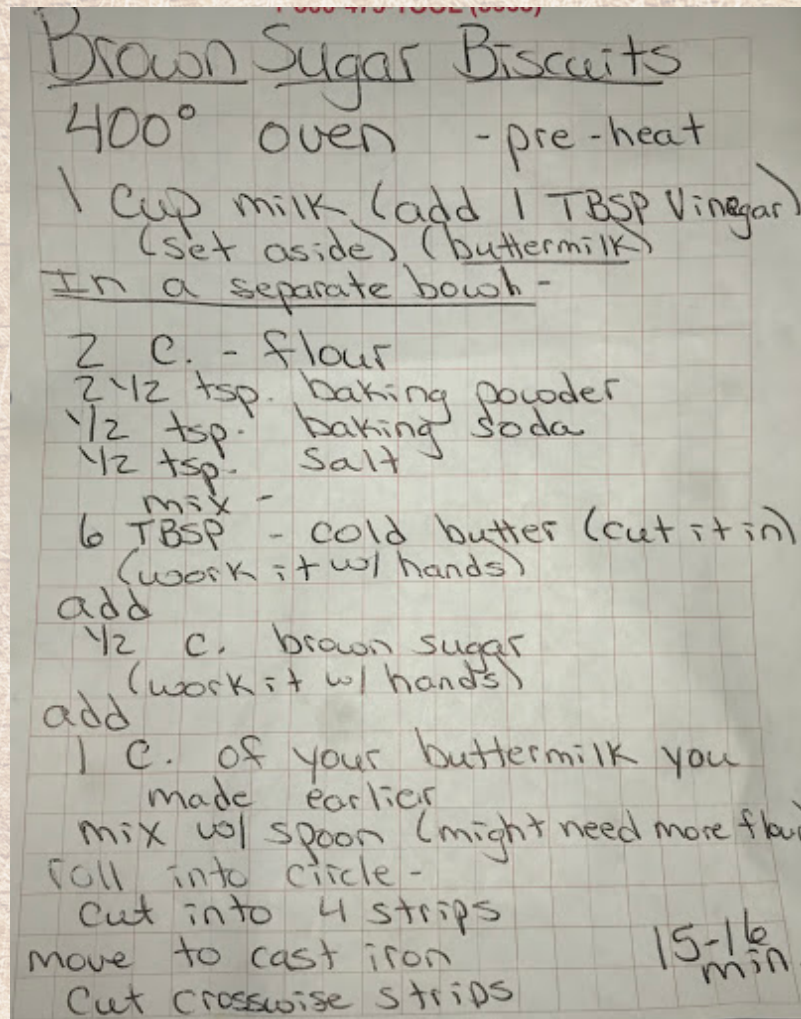 Brown Sugar Biscuits
400° oven - pre-heat
1 cup milk (add 1 TBSP Vinegar)
(set aside) (buttermilk)
In a separate bowh -
2 C. - flour
2 1/2 tsp. baking powder
1/2 tsp. baking soda
1/2 tsp. Salt
mix -
6 TBSP - cold butter (cut it in)
(work it w/ hands)
add
1/2 C. brown sugar
(work it w/ hands)
add
1 C. of your buttermilk you
made earlier
mix w/ spoon (might need more flour
roll into circle -
cut into 4 strips
move to cast iron
cut crosswise strips
15-16
min